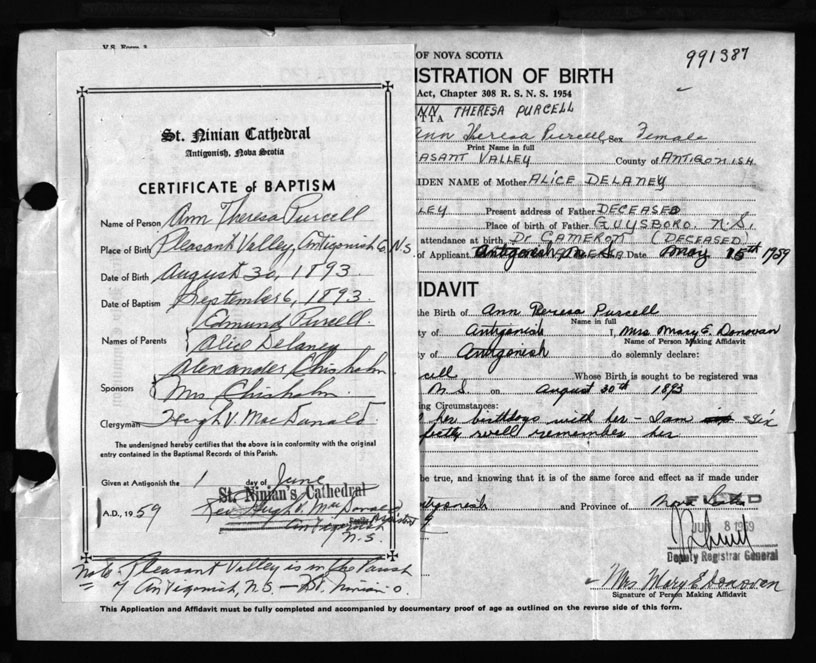 V.S. Form 3
OF NOVA SCOTIA
991387
ISTRATION OF BIRTH
Act, Chapter 308 R. S. N. S. 1954
ANN THERESA PURCELL
Ann Theresa Purcell, Sex Female
Print Name in full
ASANT VALLEY County of ANTIGONISH
IDEN NAME of Mother ALICE DELANEY
LEY Present address of Father DECEASED
Place of birth of Father GUYSBORO. N.S.
attendance at birth, Dr CAMERON (DECEASED)
of Applicant Antigonish N.S. Date May 15th 1959
St. Ninian Cathedral
Antigonish, Nova Scotia
CERTIFICATE of BAPTISM
Name of Person Ann Theresa Purcell
Place of Birth Pleasant Valley, Antigonish Co. N.S
Date of Birth August 30, 1893
Date of Baptism September 6, 1893.
Names of Parents Edmund Purcell.
Alice Delaney
Sponsors Alexander Chisholm
Mrs Chisholm.
Clergyman Hugh V. MacDonald.
The undersigned hereby certifies that the above is in conformity with the original
entry contained in the Baptismal Records of this Parish.
Given at Antigonish the 1 day of June
A.D., 1959
St. Ninian's Cathedral
Rev. Hugh V. MacDonald
Antigonish
N.S.
Note. Pleasant Valley is in the Parish
of Antigonish, N.S. — St. Ninian's.
FIDAVIT
the Birth of Ann Theresa Purcell
Name in full
ty of Antigonish I, Mrs Mary E. Donovan
Name of Person Making Affidavit
ty of Antigonish do solemnly declare:
cell Whose Birth is sought to be registered was
N.S. on August 30th 1893
ng Circumstances:
her birthdays with her - I am six
fectly well remember her
be true, and knowing that it is of the same force and effect as if made under
ntigonish and Province of Nova Scotia
FILED
JUN 8 1959
Deputy Registrar General
Mrs Mary E Donovan
Signature of Person Making Affidavit
This Application and Affidavit must be fully completed and accompanied by documentary proof of age as outlined on the reverse side of this form.